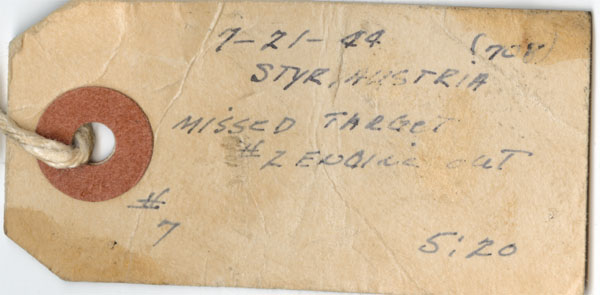 7-21-44
STYR, AUSTRIA
MISSED TARGET
#2 ENGINE OUT
#
7
5:20